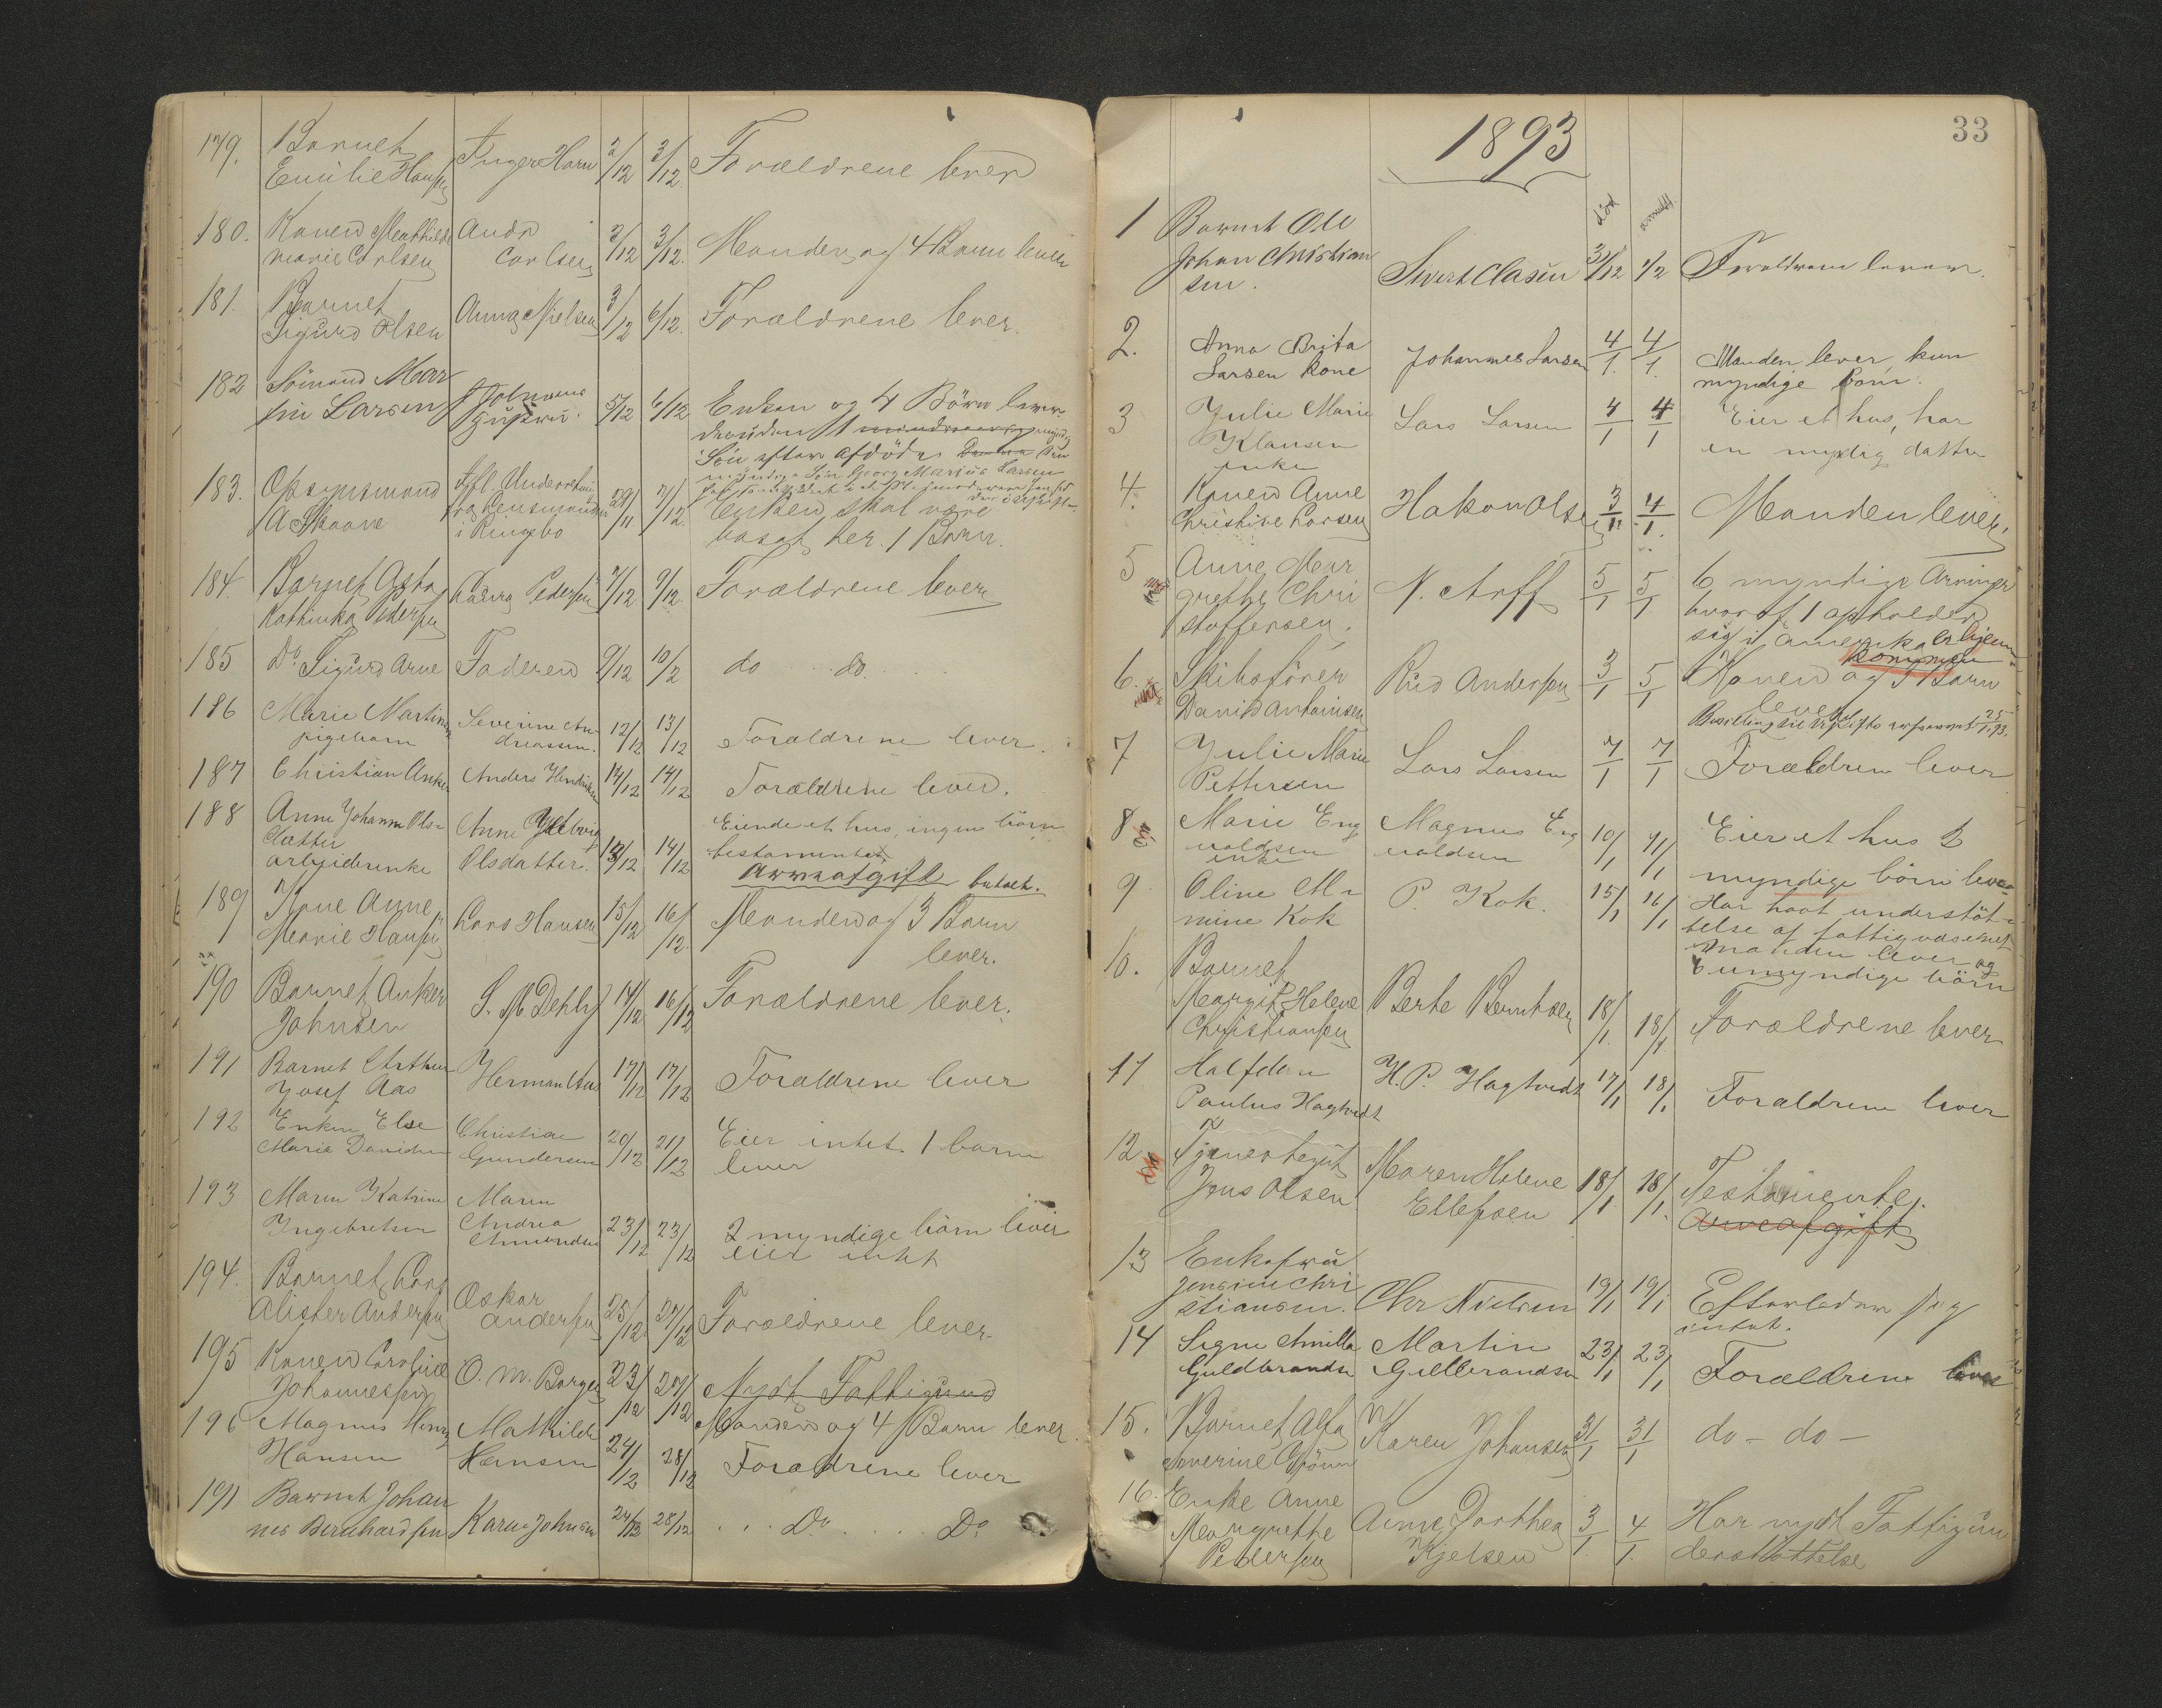 179. Barnet Inger Horn 2/12 3/12 Forældrene lever
Emilie Hansen
180. Konen Mathilde Andr 2/12 3/12. Manden og 4 Barn lever
marie Carlsen Carlsen
181. Barnet Anna Nielsen 3/12 6/12. Forældrene lever.
Sigurd Olsen
182 Sömand Mar
tin Larsen 5/12 6/12 Enken og 4 Börn lever
desuden 1
Sön efter afdöde
myndig Sön Georg Marius Larsen
183. Opsynsmand 29/11 7/12. Enken skal være
A Skaare i Ringebo bosat her. 1 Barn.
184. Barnet Asta Laura Pedersen 7/12 9/12. Forældrene lever
Kathinka Pedersen
185 Do. Sigurd Arne Faderen 9/12 10/12 do do.
186 Marie Martinsen Severine An- 12/12 13/12 Forældrene lever.
pigebarn dreasen.
187 Christian Anker Anders Hendriksen 14/12 14/12 Forældrene lever.
188 Anne Johanne Ols- Anne Hellvig 13/12 14/12 Eiende et hus, ingen börn
datter Olsdatter. testamentet
arbeiderenke Arveafgift betalt.
189 Kone Anne Lars Hansen 15/12 16/12. Manden og 3 Barn
Marie Hansen lever.
190 Barnet Anker S. M Dehly 14/12 16/12 Forældrene lever.
Johnsen
191 Barnet Arthur Herman Aas 17/12 17/12 Forældrene lever
Josef Aas
192 Enken Else Christian 20/12 21/12 Eier intet. 1 barn
Marie Davidsen Gundersen lever
193 Maren Katrine Maren
Ingebretsen Andrea 23/12 23/12 2 myndige börn lever
Amundsen eier intet
194. Barnet Lars Oskar 25/12 27/12 Forældrene lever.
Alister Andersen Andersen
195 Konen Caroline O. M. Borgen 23/12 27/12 Nydt Fattigund
Johannessen Manden og 4 Barn lever.
196 Magnus Henry Mathilde 24/12 28/12 Forældrene lever
Hansen Hansen
197 Barnet Johan
nes Bernhardsen Karen Johnsen 24/12 28/12 . . . Do . . . . Do
33
1893
död anmeldt.
1 Barnet Ole
Johan Christian
sen. Sivert Clasen 31/12 1/2 Forældrene lever.
2. Anna Brita Johannes Larsen 4/1. 4/1. Manden lever, kun
Larsen kone myndige börn.
3 Julie Marie Lars Larsen 4/1 4/1 Eier et hus, har
Klausen en myndig datter
enke
4. Konen Anne Hakon Olsen 3/1. 4/1. Manden lever.
Christine Larsen
5 Anne Mar N. Arff 5/1 5/1 6 myndige Arvinger
grethe Chri hvoraf 1 opholder
stoffersen. sig i Amerika er hjem
kommen
6. Skibsförer Rud Andersen 3/1 5/1 Konen og 3 Barn
David Antonisen lever
Bevilling til 25/1.93.
7 Julie Marie Lars Larsen 7/1 7/1 Forældren lever
Pettersen
8 Marie Eng Magnus Eng 10/1 11/1 Eier et hus 2
valdsen valdsen myndige börn lever
enke
9 Oline Al- P. Kok. 15/1 16/1 Har havt understöt-
mine Kok telse af fattigvæsenet
manden lever og
umyndige börn
10. Barnet
Margit Helene Berte Berntsen 18/1. 18/1 Forældrene lever
Christiansen
11 Halfdan H. P. Hagtvedt 17/1 18/1 Forældrene lever
Paulus Hagtvedt
12 Tjenestegut Maren Helene 18/1 18/1. Testamente.
Jens Olsen Ellefsen Arveafgift
13 Enkefru
Jensine Chri
stiansen. Chr Nielsen 19/1 19/1 Efterlader sig
intet.
14 Signe Amilla Martin 23/1 23/1 Forældrene lever
Guldbrandsen Gullbrandsen
15. Barnet Alfa Karen Johansen 31/1 31/1 do - do -
Severine Björn
16. Enke Anne
Margrethe Anne Dorthea 3/1. 4/1. Har nydt Fattigun
Pedersen Kjelsen derstöttelse